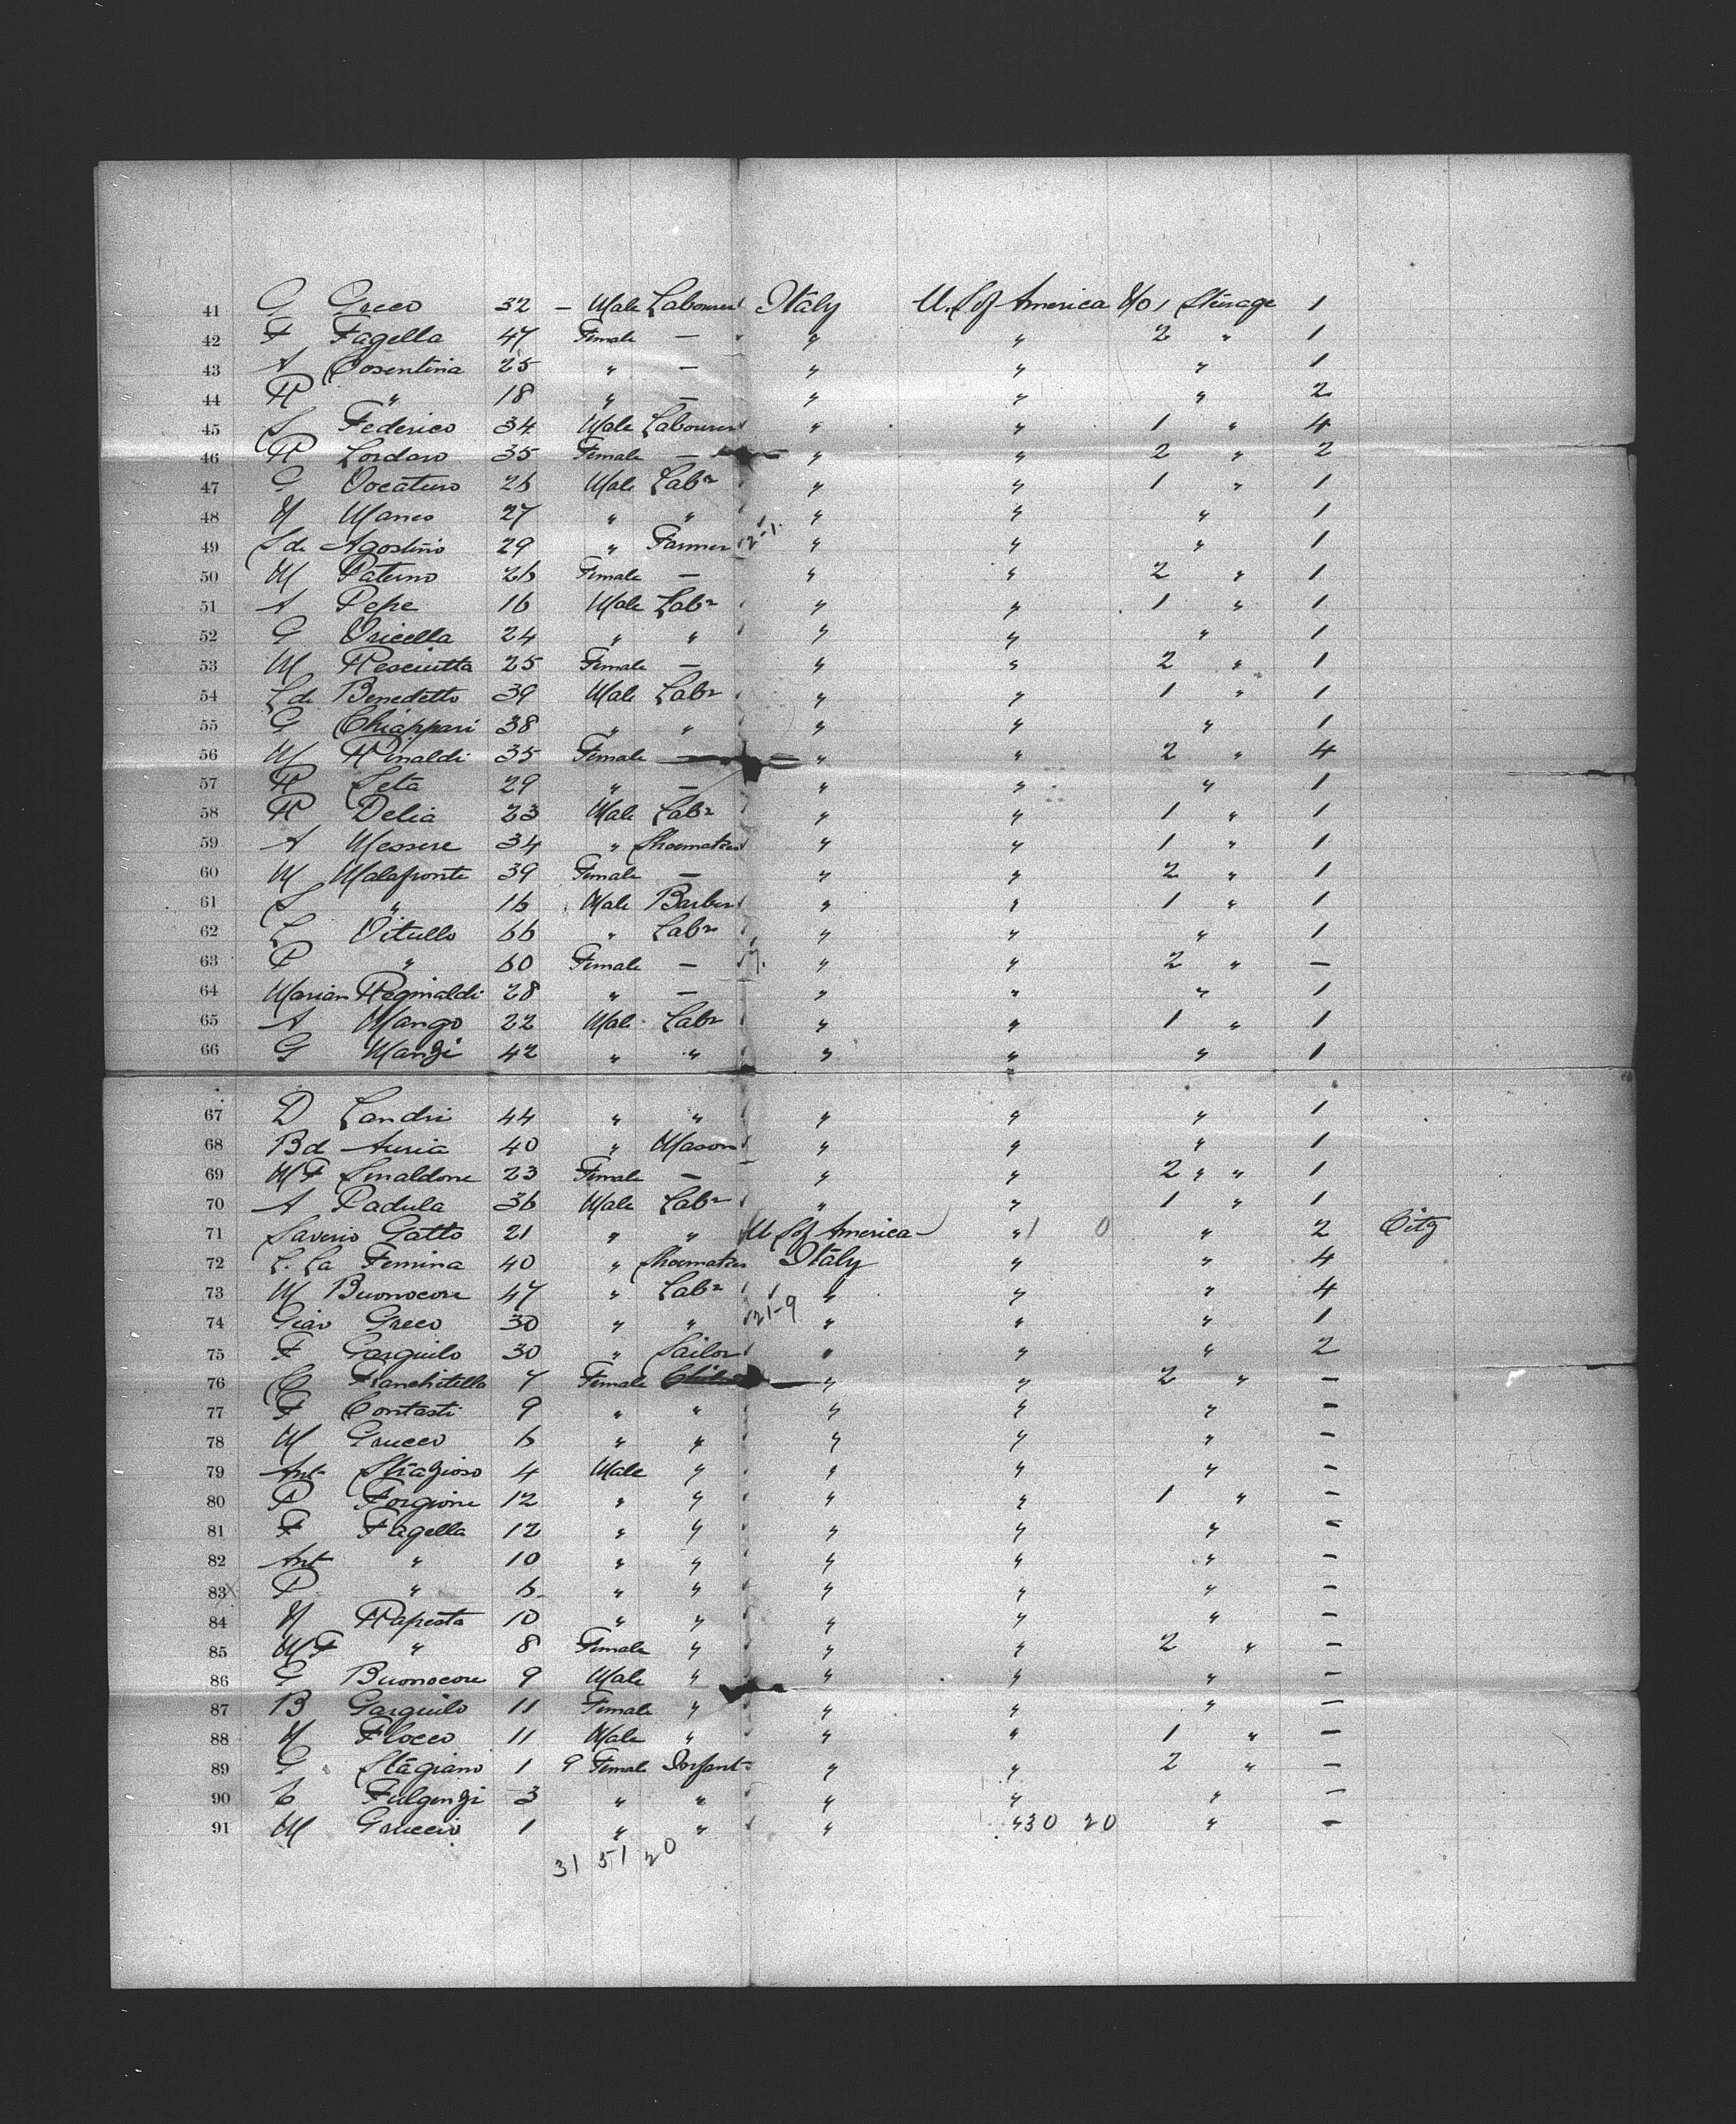 41 G Greco 32 – Male Labourer Italy U.S. of America No 1 Steerage 1
42 F Fagella 47 Female – " " 2 " 1
43 A Cosentina 25 " – " " " 1
44 R " 18 " – " " " 2
45 S Federico 34 Male Labourer " " 1 " 4
46 R Lordaro 35 Female – " " 2 " 2
47 G Vocaturo 26 Male Labr " " 1 " 1
48 N Manes " 27 " " " " " 1
49 S de Agostino 29 " Farmer " " " 1
50 M Paterno 26 Female – " " 2 " 1
51 A Pepe 16 Male Labr " " 1 " 1
52 G Oricella 24 " " " " " 1
53 M Resciutta 25 Female – " " 2 " 1
54 L de Benedetto 39 Male Labr " " 1 " 1
55 G Chiappari 38 " " " " " 1
56 M Rinaldi 35 Female – " " 2 " 4
57 R Seta 29 " – " " " 1
58 R Delia 23 Male Labr " " 1 " 1
59 A Messere 34 " Shoemaker " " 1 " 1
60 M Malafronte 39 Female – " " 2 " 1
61 S " 16 Male Barber " " 1 " 1
62 L Vitullo 66 " Labr " " " 1
63 P " 60 Female – " " 2 " –
64 Marian Reginaldi 28 " – " " " 1
65 A Mango 22 Male Labr " " 1 " 1
66 G Manzi 42 " " " " " 1
67 D Landri 44 " " " " " 1
68 B d Auria 40 " Mason " " " 1
69 M F Smaldone 23 Female – " " 2 " " 1
70 A Padula 36 Male Labr " " 1 " 1
71 Saverio Gatto 21 " " U S of America " 1 0 " 2 City
72 L. La Femina 40 " Shoemaker Italy " " 4
73 M Buonocore 47 " Labr " " " 4
74 Giov Greco 30 " " 21-9 " " " 1
75 F Garguilo 30 " Sailor " " " 2
76 C Franchitella 7 Female Child " " 2 " –
77 F Contasti 9 " " " " " –
78 M Grucco 6 " " " " " –
79 Ant Strazioso 4 Male " " " " –
80 P Forgione 12 " " " " 1 " –
81 F Fagella 12 " " " " " –
82 Ant " 10 " " " " " –
83 P " 6 " " " " " –
84 N Rapesta 10 " " " " " –
85 M F " 8 Female " " " 2 " –
86 G Buonocore 9 Male " " " " –
87 B Garguilo 11 Female " " " " –
88 N Flocco 11 Male " " " 1 " –
89 G Stagiano 1 9 Female Infant " " 2 " –
90 C Fulgenzi 3 " " " " " –
91 M Gruccio 1 " " " " 30 20 " –
31 51 20